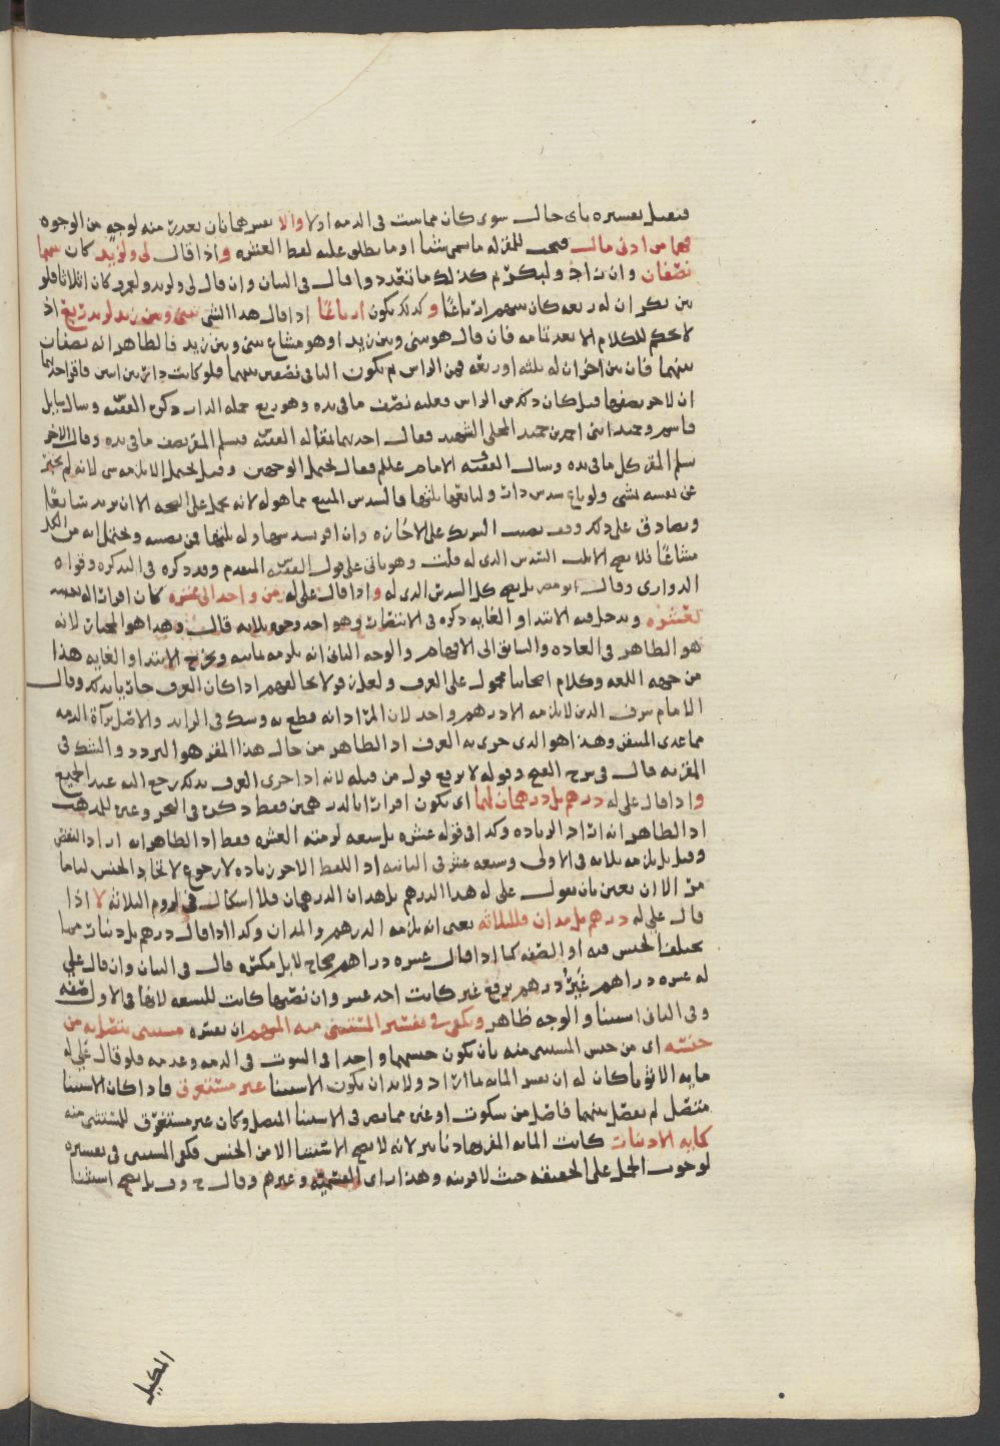 فيقبل تفسيره باى حال سوى كان مما يثبت فى الذمه او لا والا يفسرهما بان تعذر منه لوجه من الوجوه
فهما من ادنى مال فيجب للمقر له ما سمى شيئا او ما يطلق عليه لفظ العشره واذا قال لى ولزيد كان بينهما
نصفان وان زاد ولبكر ثم كذلك ما تعدد واقال فى البيان وان قال لى ولزيد ولعمرو كان اثلاثا فلو
بين بكر ان له ربعه كان بينهم ارباعًا وكذلك يكون ارباعًا اذا قال هذا الشى بينى وبين زيد لزيد ربعه اذ
لا حكم للكلام الا بعد تمامه فان قال هو بينى وبين زيد او هو مشاع بينى وبين زيد فالظاهر انه نصفان
بينهما فان بين اخر ان له ثلثه او ربعه فمن الراس ثم يكون الباقى نصفين بينهما فلو كانت دار بين اثنين فاقر احدهما
ان لاخر نصفها قيل كان ذلك من الراس فعليه نصف ما فى يده وهو ربع جمله الدار ذكره الفقيه وسال سايل
قاسم وحميد ابنى احمد بن حميد المحلى الشهيد فقال احدهما بمقاله الفقيه فيسلم المقر نصف ما فى يده وقال الاخر
يسلم المقر كل ما فى يده وسال الفقيه الامام علم فقال يحتمل الوجهين وقيل يحتمل الا يلزمه شى لانه لم يخبر
عن نفسه بشى ولو باع سدس دار ولبايعها ثلثها فالسدس المبيع مما هو له لانه يحمل على الصحه الا ان يريد شايعًا
وتصادق على ذلك وقف نصيب الشريك على الاجازه وان اقر بسدسها وله ثلثها فمن نصيبه ويحتمل انه من الكل
مشاعًا فلا يصح الا ثلث السدس الذى له قلت وهو ياتى على قول الفقيه المتقدم وقد ذكره فى التذكره وقواه
الدوارى وقال ابو مضر بل يصح كل السدس الذى له واذا قال على له من واحد الى عشره كان اقرارا له
لعشره ويدخل فيه الابتدا والغايه ذكره فى الانتصار وهو احد وجوه ثلاثه قال وهذا هو المختار لانه
هو الظاهر فى العاده والسابق الى الافهام والوجه الثانى انه يلزمه ثمانيه ويخرج الابتدا والغايه هذا
من جهه اللغه وكلام اصحابنا محمول على العرف ولعل زفر لا يخالفهم اذا كان العرف جاريا بذلك وقال
الامام شرف الدين لا يلزمه الا درهم واحد لان المراد انه قطع به وشك فى الزايد والاصل برآة الذمه
مما عدى المتيقن وهذا هو الذى جرى به العرف اذ الظاهر من حال هذا المقر هو التردد والشك فى
المقر به قال فى شرح الفتح وقوله لا يرفع قول من قبله لانه اذا جرى العرف بذلك رجع اليه عند الجميع
واذا قال على له درهم بل درهمان لهما اى يكون اقرارا بالدرهمين فقط ذكره فى البحر وغيره للمذهب
اذ الظاهر انه اراد الزياده وكذا فى قوله عشره بل تسعه لزمته العشره فقط اذ الظاهر انه اراد النقص
وقيل بل يلزمه ثلاثه فى الاولى وتسعه عشر فى الثانيه اذ اللفظ الاخر زياده لا رجوع لاتحاد الجنس لما ما
مر الا ان يعين بان يقول على له هذا الدرهم بل هذان الدرهمان فلا اشكال فى لزوم الثلاثه لا اذا
قال على له درهم بل مدان فالثلاثه يعنى انه يلزمه الدرهم والمدان وكذا اذا قال درهم بل دينار مما
يختلف الجنس فيه او الصفه كما اذا قال عشره دراهم صحاح لا بل مكسره قال فى البيان وان قال على
له عشره دراهم غيرُ درهم برفع غير كانت احد عشر وان نصبها كانت للتسعه لانها فى الاول صفه
وفى الثانى استثنا والوجه ظاهر ويكفى فى تفسير المستثنى منه المبهم ان يفسره مستثنى متصل به من
جنسه اى من جنس المستثنى منه بان يكون جنسهما واحدا فى الثبوت فى الذمه وعدمه فلو قال على له
مايه الا ثوبا كان له ان يفسر المائه بما اراد ولا بد ان يكون الاستثنا غير مستغرق فاذا كان الاستثنا
متصل لم يفصل بينهما فاصل من سكوت او غيره مما يضر فى الاستثنا المتصل وكان غير مستغرق للمستثنى منه
كمايه الا دينار كانت المائه المقر بها دنانير لانه لا يصح الاستثنا الا من الجنس فكفى المستثنى فى تفسيره
لوجوب الحمل على الحقيقه حيث لا قرينه وهذا راى القسميه وغيرهم وقال ح وف بل يصح استثنا
المكيل